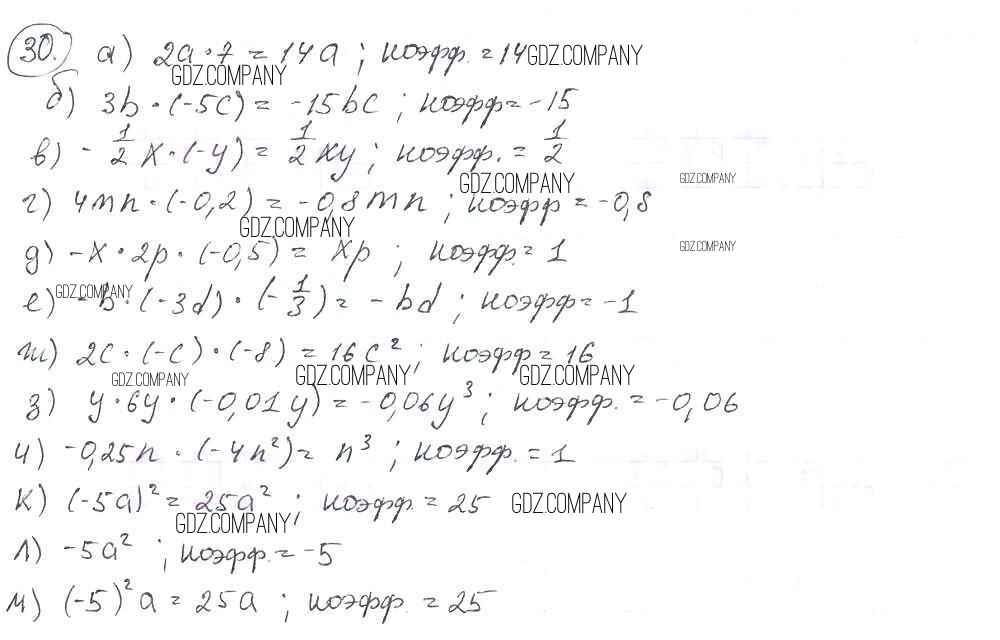 30. а) 2a · 7 = 14a ; коэфф. = 14 GDZ.COMPANY
GDZ.COMPANY
б) 3b · (-5c) = -15bc ; коэфф = -15
в) - 1/2 x · (-y) = 1/2 xy ; коэфф. = 1/2
GDZ.COMPANY GDZ.COMPANY
г) 4mn · (-0,2) = -0,8mn ; коэфф = -0,8
GDZ.COMPANY
д) -x · 2p · (-0,5) = xp ; коэфф. = 1 GDZ.COMPANY
GDZ.COMPANY
е) -b · (-3d) · (- 1/3) = -bd ; коэфф = -1
ж) 2c · (-c) · (-8) = 16c² ; коэфф = 16
GDZ.COMPANY GDZ.COMPANY GDZ.COMPANY
з) y · 6y · (-0,01y) = -0,06y³ ; коэфф. = -0,06
и) -0,25n · (-4n²) = n³ ; коэфф. = 1
к) (-5a)² = 25a² ; коэфф = 25 GDZ.COMPANY
GDZ.COMPANY
л) -5a² ; коэфф. = -5
м) (-5)²a = 25a ; коэфф = 25